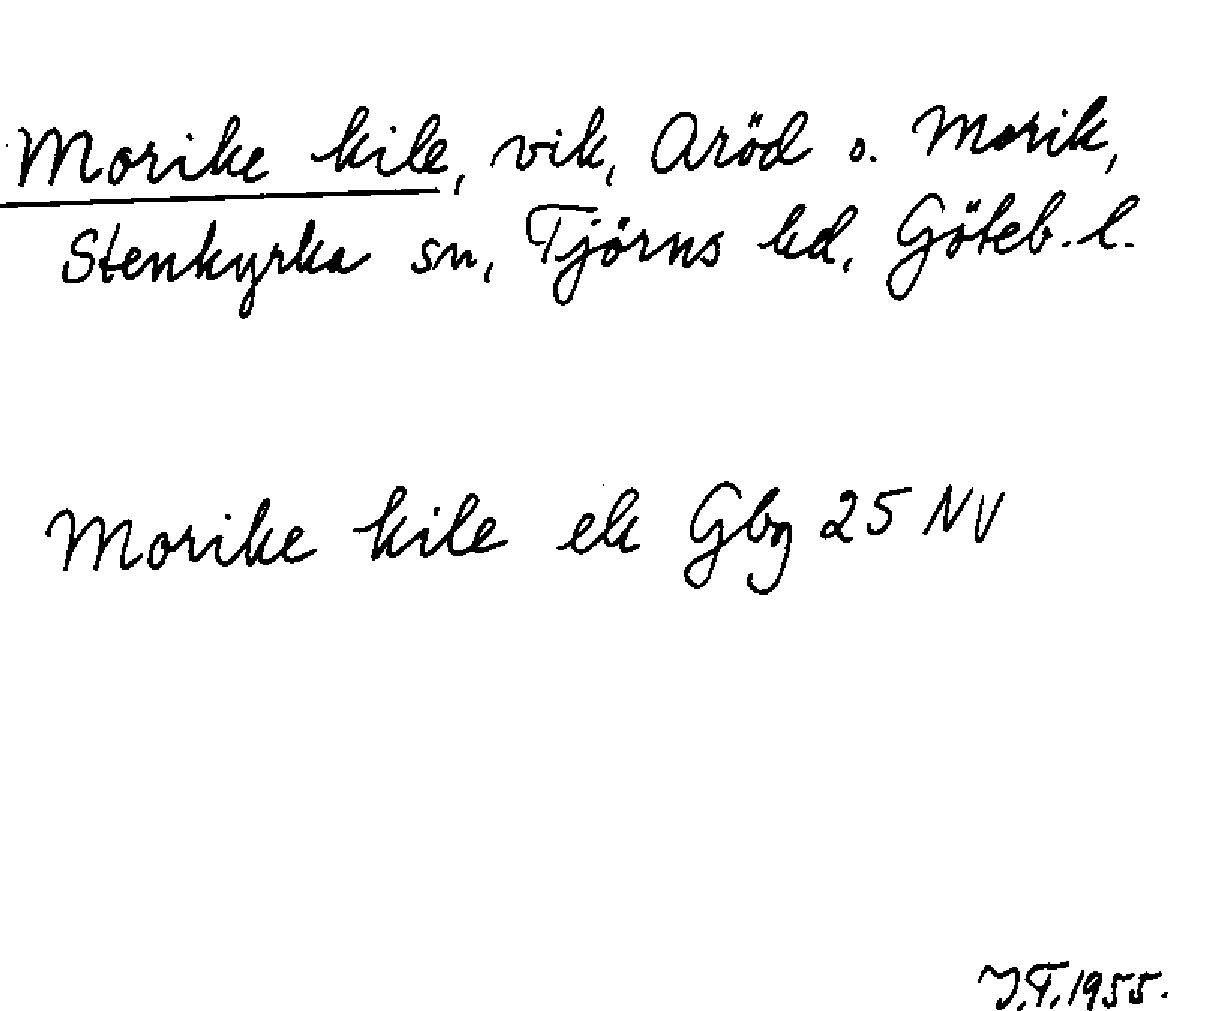 Morike kile, vik, Aröd o. Morik,
Stenkyrka sn, Tjörns hd, Göteb. l.
Morike kile ek Gbg 25 NV
J.T. 1955.